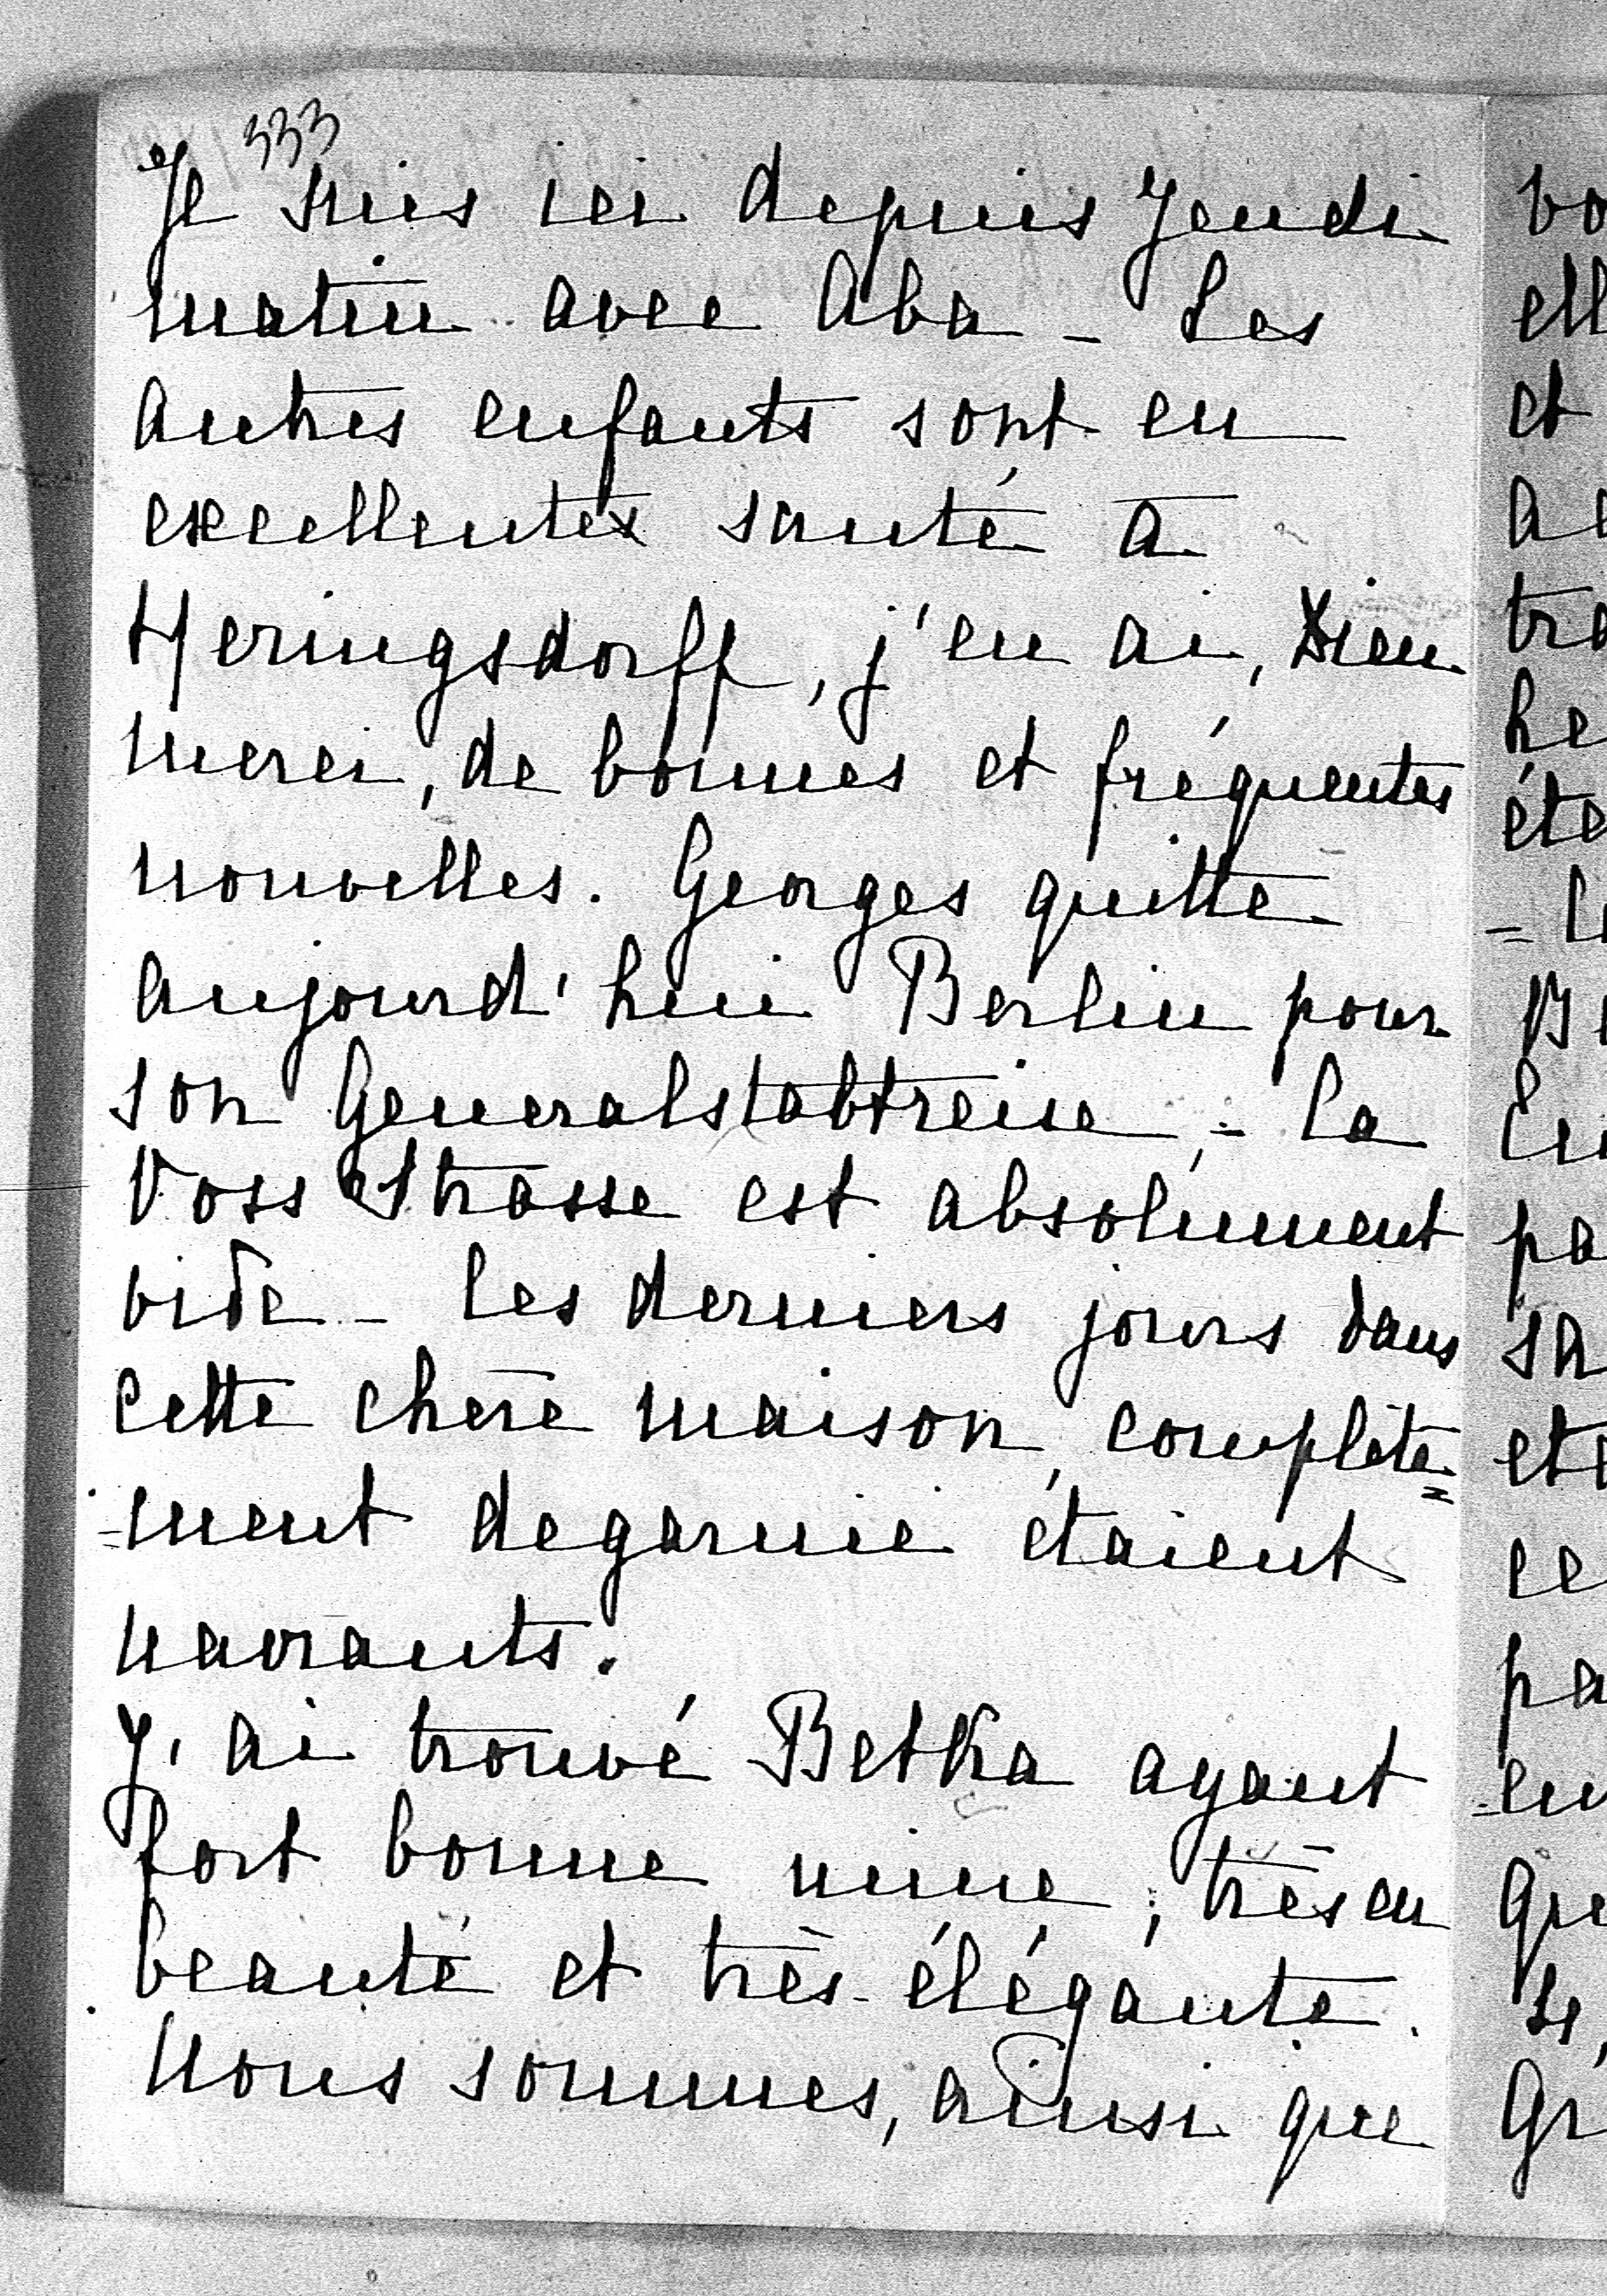 333
Je suis ici depuis Jeudi
matin avec Aba - Les
autres enfants sont en
excellentes santé à
Heringsdorff, j'en ai, Dieu
merci, de bonnes et fréquentes
nouvelles. Georges quitte
aujourd'hui Berlin pour
son Generalstabtreise, - La
Voss Strasse est absolument
vide - Les derniers jours dans
cette chère maison, complète=
=ment degarnie étaient
navrants.
J'ai trouvé Betka ayant
fort bonne mine, très en
beauté et très-élégante.
Nous sommes, ainsi que